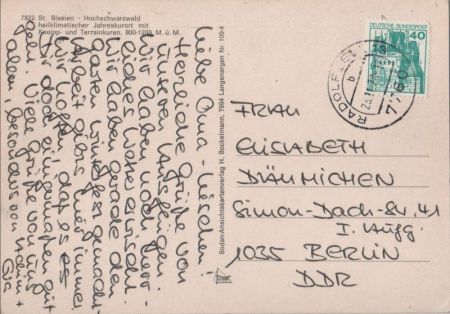 7822 St. Blasien - Hochschwarzwald
heilklimatischer Jahreskurort mit
Kneipp- und Terrainkuren, 800-1200 M. ü. M.
Liebe Oma-Mechen!
Herzliche Grüße von
unseren Ausflügen.
Wir haben noch herr-
liches Wetter erwischt.
Wir haben gerade den
Garten winterfest gemacht.
Arbeit gibts hier immer.
Wir hoffen, daß es es
Dir doch einigermaßen gut
Viele Grüße von uns
allen, besonders von
Eva
Boden-Ansichtskartenverlag H. Bockelmann, 7994 Langenargen Nr. 109-4
DEUTSCHE BUNDESPOST
40
RADOLFZELL
7760
FRAU
ELISABETH
DÄUMICHEN
Simon-Dach-Str. 41
I. Aufg.
1035 BERLIN
DDR